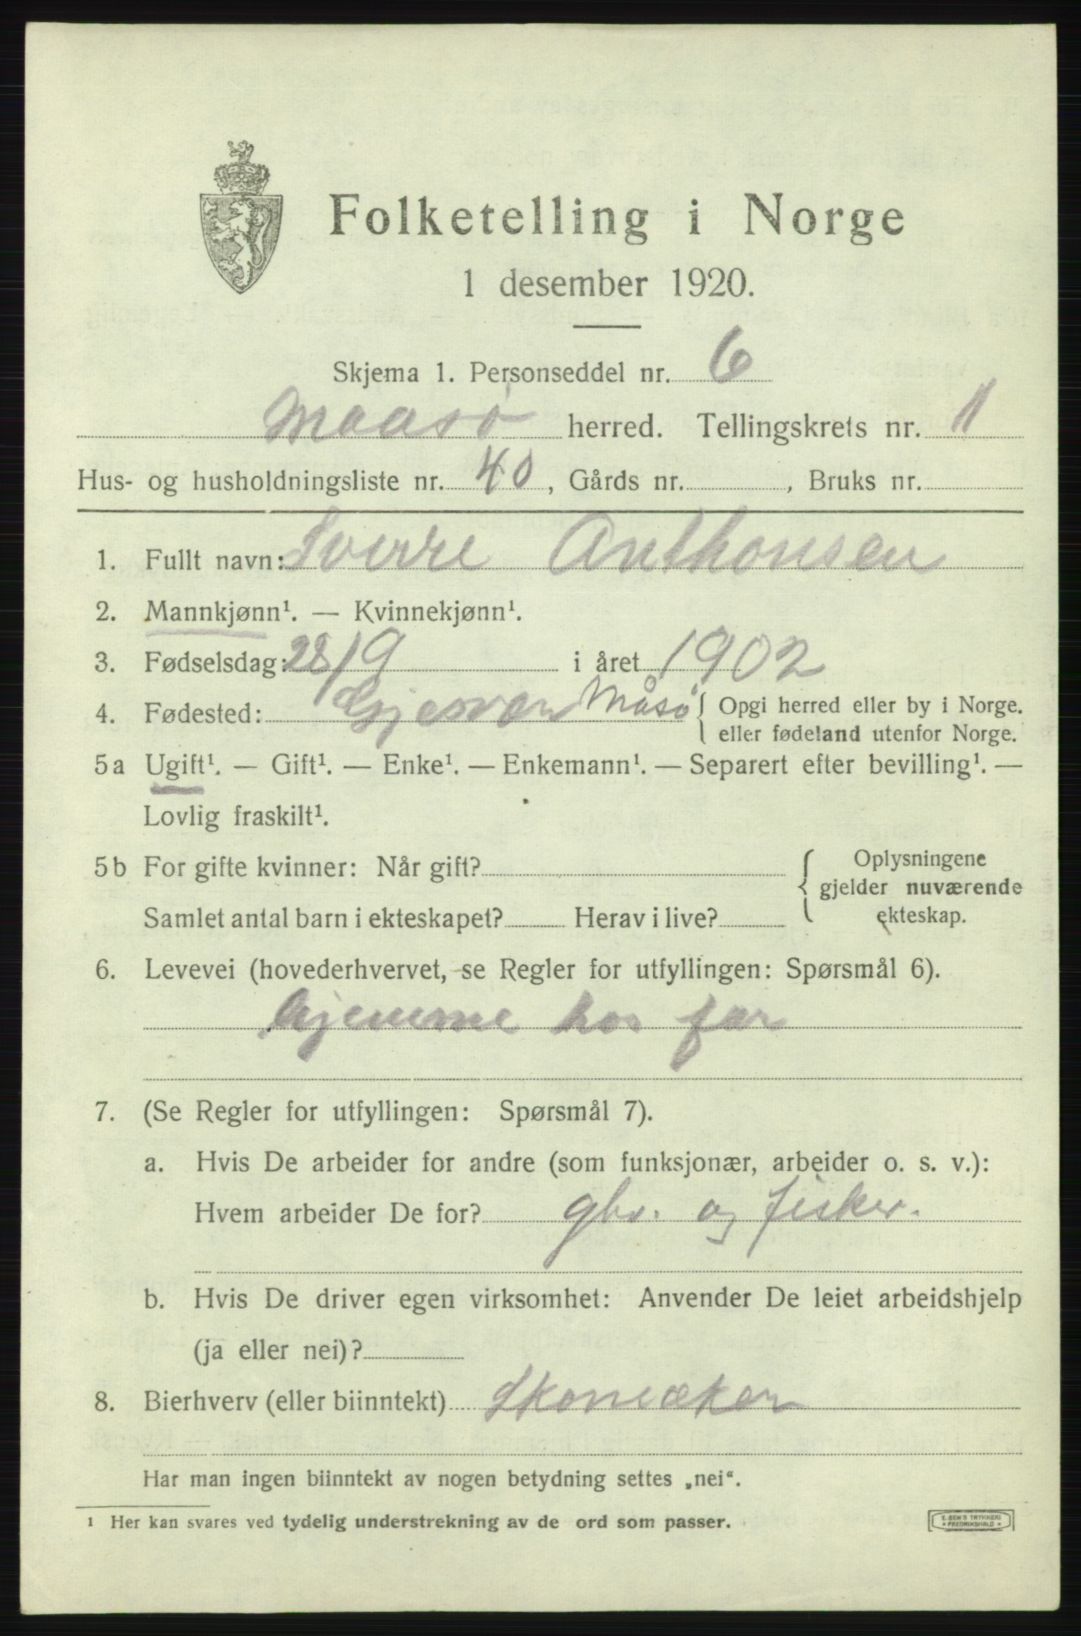 Folketelling i Norge
1 desember 1920.
Skjema 1. Personseddel nr. 6
Maasø herred. Tellingskrets nr. 11
Hus- og husholdningsliste nr. 40, Gårds nr. , Bruks nr.
1. Fullt navn: Sverre Anthonsen
2. Mannkjønn¹. — Kvinnekjønn¹.
3. Fødselsdag: 28/9 i året 1902
4. Fødested: Gjesvær Måsø { Opgi herred eller by i Norge.
eller fødeland utenfor Norge.
5a Ugift¹. — Gift¹. — Enke¹. — Enkemann¹. — Separert efter bevilling¹. —
Lovlig fraskilt¹.
5b For gifte kvinner: Når gift?
Samlet antal barn i ekteskapet? Herav i live?
{ Oplysningene
gjelder nuværende
ekteskap.
6. Levevei (hovederhvervet, se Regler for utfyllingen: Spørsmål 6).
hjemme hos far
7. (Se Regler for utfyllingen: Spørsmål 7).
a. Hvis De arbeider for andre (som funksjonær, arbeider o. s. v.):
Hvem arbeider De for? gbr. og fisker.
b. Hvis De driver egen virksomhet: Anvender De leiet arbeidshjelp
(ja eller nei)?
8. Bierhverv (eller biinntekt)
Har man ingen biinntekt av nogen betydning settes „nei“.
¹ Her kan svares ved tydelig understrekning av de ord som passer.